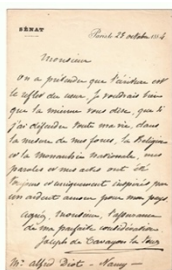 SÉNAT
Paris le 28 octobre 1884
Monsieur
On a prétendu que l'écriture est
le reflet du cœur. Je voudrais bien
que la mienne vous dise, que si
j'ai défendu toute ma vie, dans
la mesure de mes forces, la Religion
et la monarchie nationale, mes
paroles et mes actes ont été
toujours et uniquement inspirés par
un ardent amour pour mon pays
agréez, monsieur, l'assurance
de ma parfaite considération
Joseph de Carayon la Tour
Mr. Alfred Diot - Nancy -